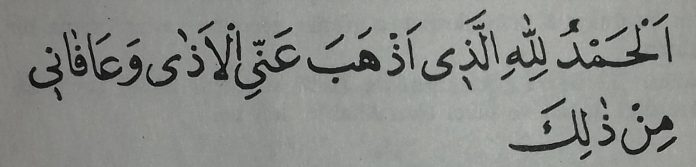 اَلْحَمْدُ لِلّٰهِ الَّذِى اَذْهَبَ عَنِّى اْلاَذٰى وَعَافَانِى
مِنْ ذٰلِكَ